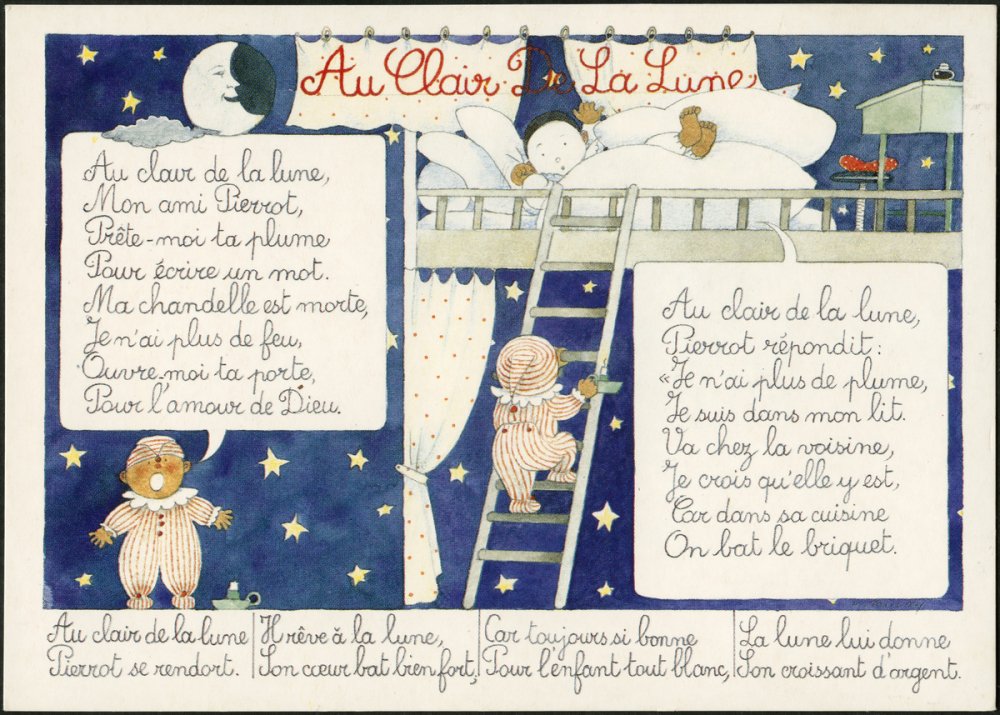 Au Clair De La Lune
Au clair de la lune,
Mon ami Pierrot,
Prête-moi ta plume
Pour écrire un mot.
Ma chandelle est morte,
Je n'ai plus de feu,
Ouvre-moi ta porte,
Pour l'amour de Dieu.
Au clair de la lune,
Pierrot répondit :
«Je n'ai plus de plume,
Je suis dans mon lit.
Va chez la voisine,
Je crois qu'elle y est,
Car dans sa cuisine
On bat le briquet.
Au clair de la lune
Pierrot se rendort.
Il rêve à la lune,
Son cœur bat bien fort,
Car toujours si bonne
Pour l'enfant tout blanc,
La lune lui donne
Son croissant d'argent.